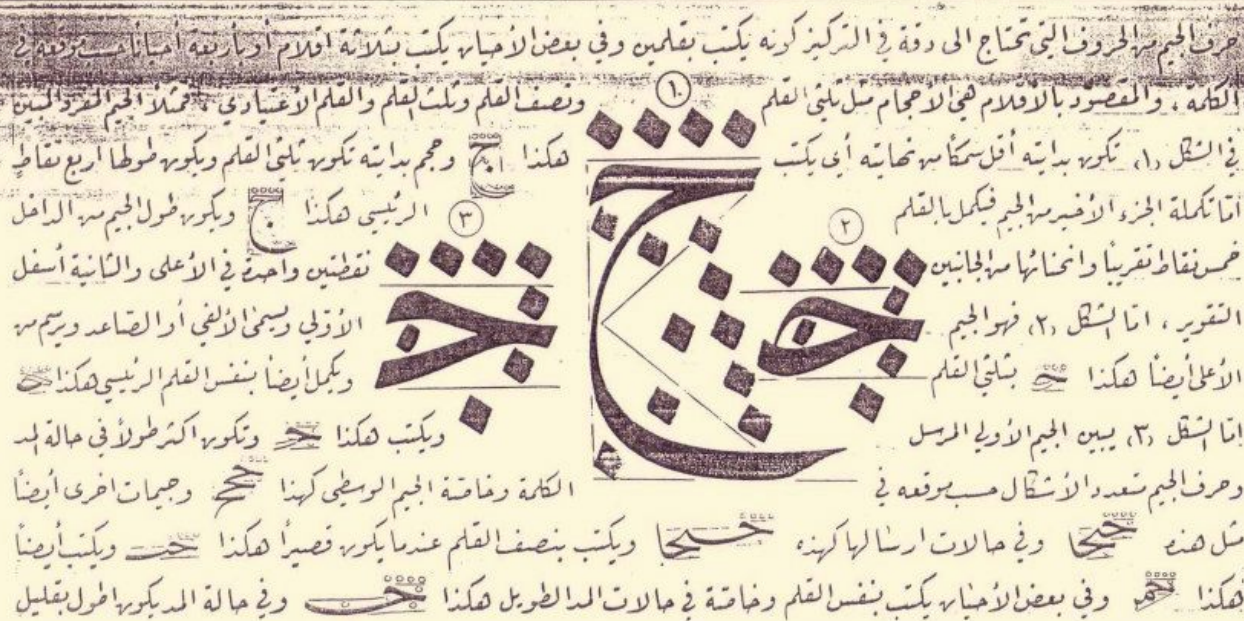 حرف الجيم من الحروف التي تحتاج الى دقة في التركيز كونه يكتب بقلمين وفي بعض الأحيان يكتب بثلاثة اقلام أو بأربعة أحيانا حسب موقعه في
الكلمة ، والمقصود بالأقلام هي الأحجام مثل ثلثي القلم ١ ونصف القلم وثلث القلم والقلم الأعتيادي ، فمثلاً الجيم المفرد المبين
في الشكل (١) تكون بدايته أقل سمكاً من نهايته أي يكتب هكذا ج وحجم بدايته تكون ثلثي القلم ويكون طولها اربع نقاط
امّا تكملة الجزء الأخير من الجيم فيكمل بالقلم ٢ ٣ الرئيسي هكذا ج ويكون طول الجيم من الداخل
خمس نقاط تقريباً وانحنائها من الجانبين نقطتين واحدة في الأعلى والثانية أسفل
التقوير ، امّا الشكل (٢) فهو الجيم الأولي ويسمى الألفي أو الصاعد ويرسم من
الأعلى أيضاً هكذا بثلثي القلم ويكمل أيضاً بنفس القلم الرئيسي هكذا
امّا الشكل (٣) يبين الجيم الأولي المرسل ويكتب هكذا وتكون اكثر طولاً في حالة المد
وحرف الجيم متعدد الأشكال حسب موقعه في الكلمة وخاصة الجيم الوسطى كهذا وجيمات اخرى أيضاً
مثل هذه وفي حالات ارسالها كهذه ويكتب بنصف القلم عندما يكون قصيراً هكذا ويكتب أيضاً
هكذا وفي بعض الأحيان يكتب بنفس القلم وخاصة في حالات المد الطويل هكذا وفي حالة المد يكون اطول بقليل